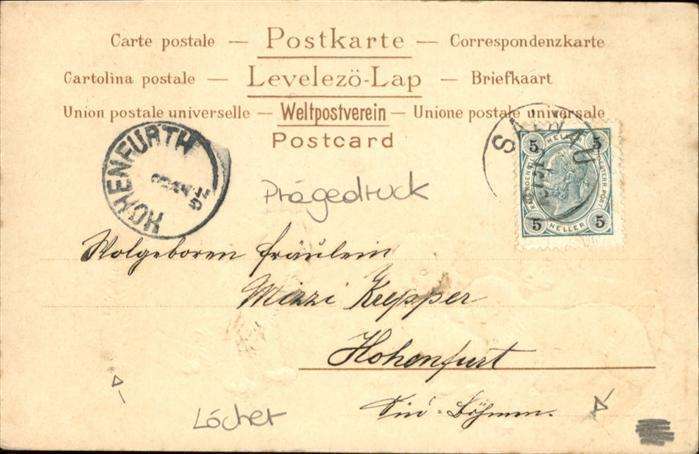 Carte postale — Postkarte — Correspondenzkarte
Cartolina postale — Levelezö-Lap — Briefkaart
Union postale universelle — Weltpostverein — Unione postale universale
Postcard
HOHENFURTH
5 5
5 HELLER 5
Prägedruck
Wolgeboren Fräulein
Mizzi Krepper
Hohenfurt
Süd-Böhmen.
Löcher